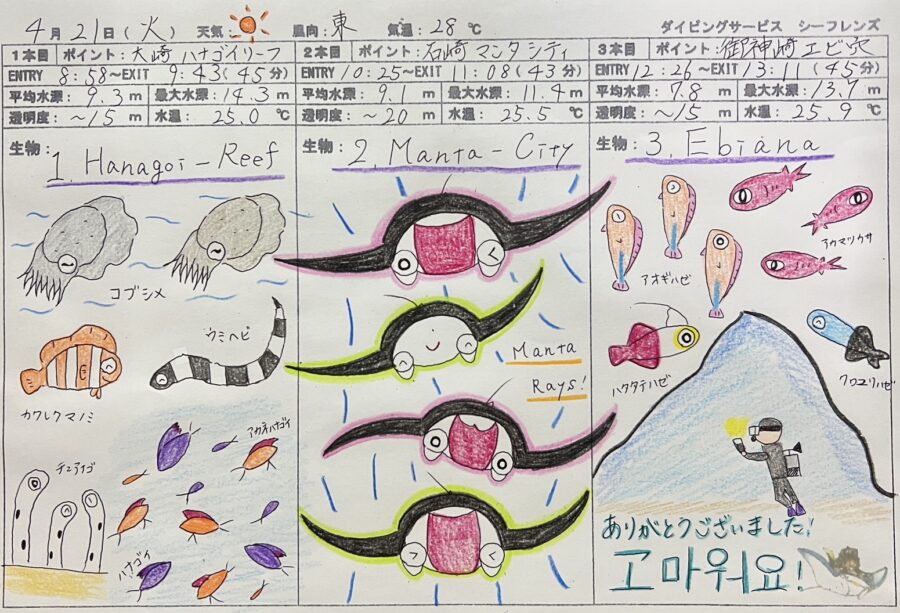 4月21日(火) 天気: 風向:東 気温:28℃ ダイビングサービス シーフレンズ
1本目 ポイント:大崎 ハナゴイリーフ
ENTRY 8:58~EXIT 9:43(45分)
平均水深: 9.3 m 最大水深: 14.3 m
透明度: ~15 m 水温: 25.0 ℃
生物: 1. Hanagoi-Reef
コブシメ
ウミヘビ
カワレクマノミ
アカネハナゴイ
チンアナゴ
ハナゴイ
2本目 ポイント:石崎 マンタシティ
ENTRY 10:25~EXIT 11:08(43分)
平均水深: 9.1 m 最大水深: 11.4 m
透明度: ~20 m 水温: 25.5 ℃
生物: 2. Manta-City
Manta
Rays!
3本目 ポイント:御神崎エビ穴
ENTRY 12:26~EXIT 13:11(45分)
平均水深: 7.8 m 最大水深: 13.7 m
透明度: ~15 m 水温: 25.9 ℃
生物: 3. Ebiana
アカマツカサ
アオギハゼ
ハタタテハゼ
クロユリハゼ
ありがとうございました!
고마워요!